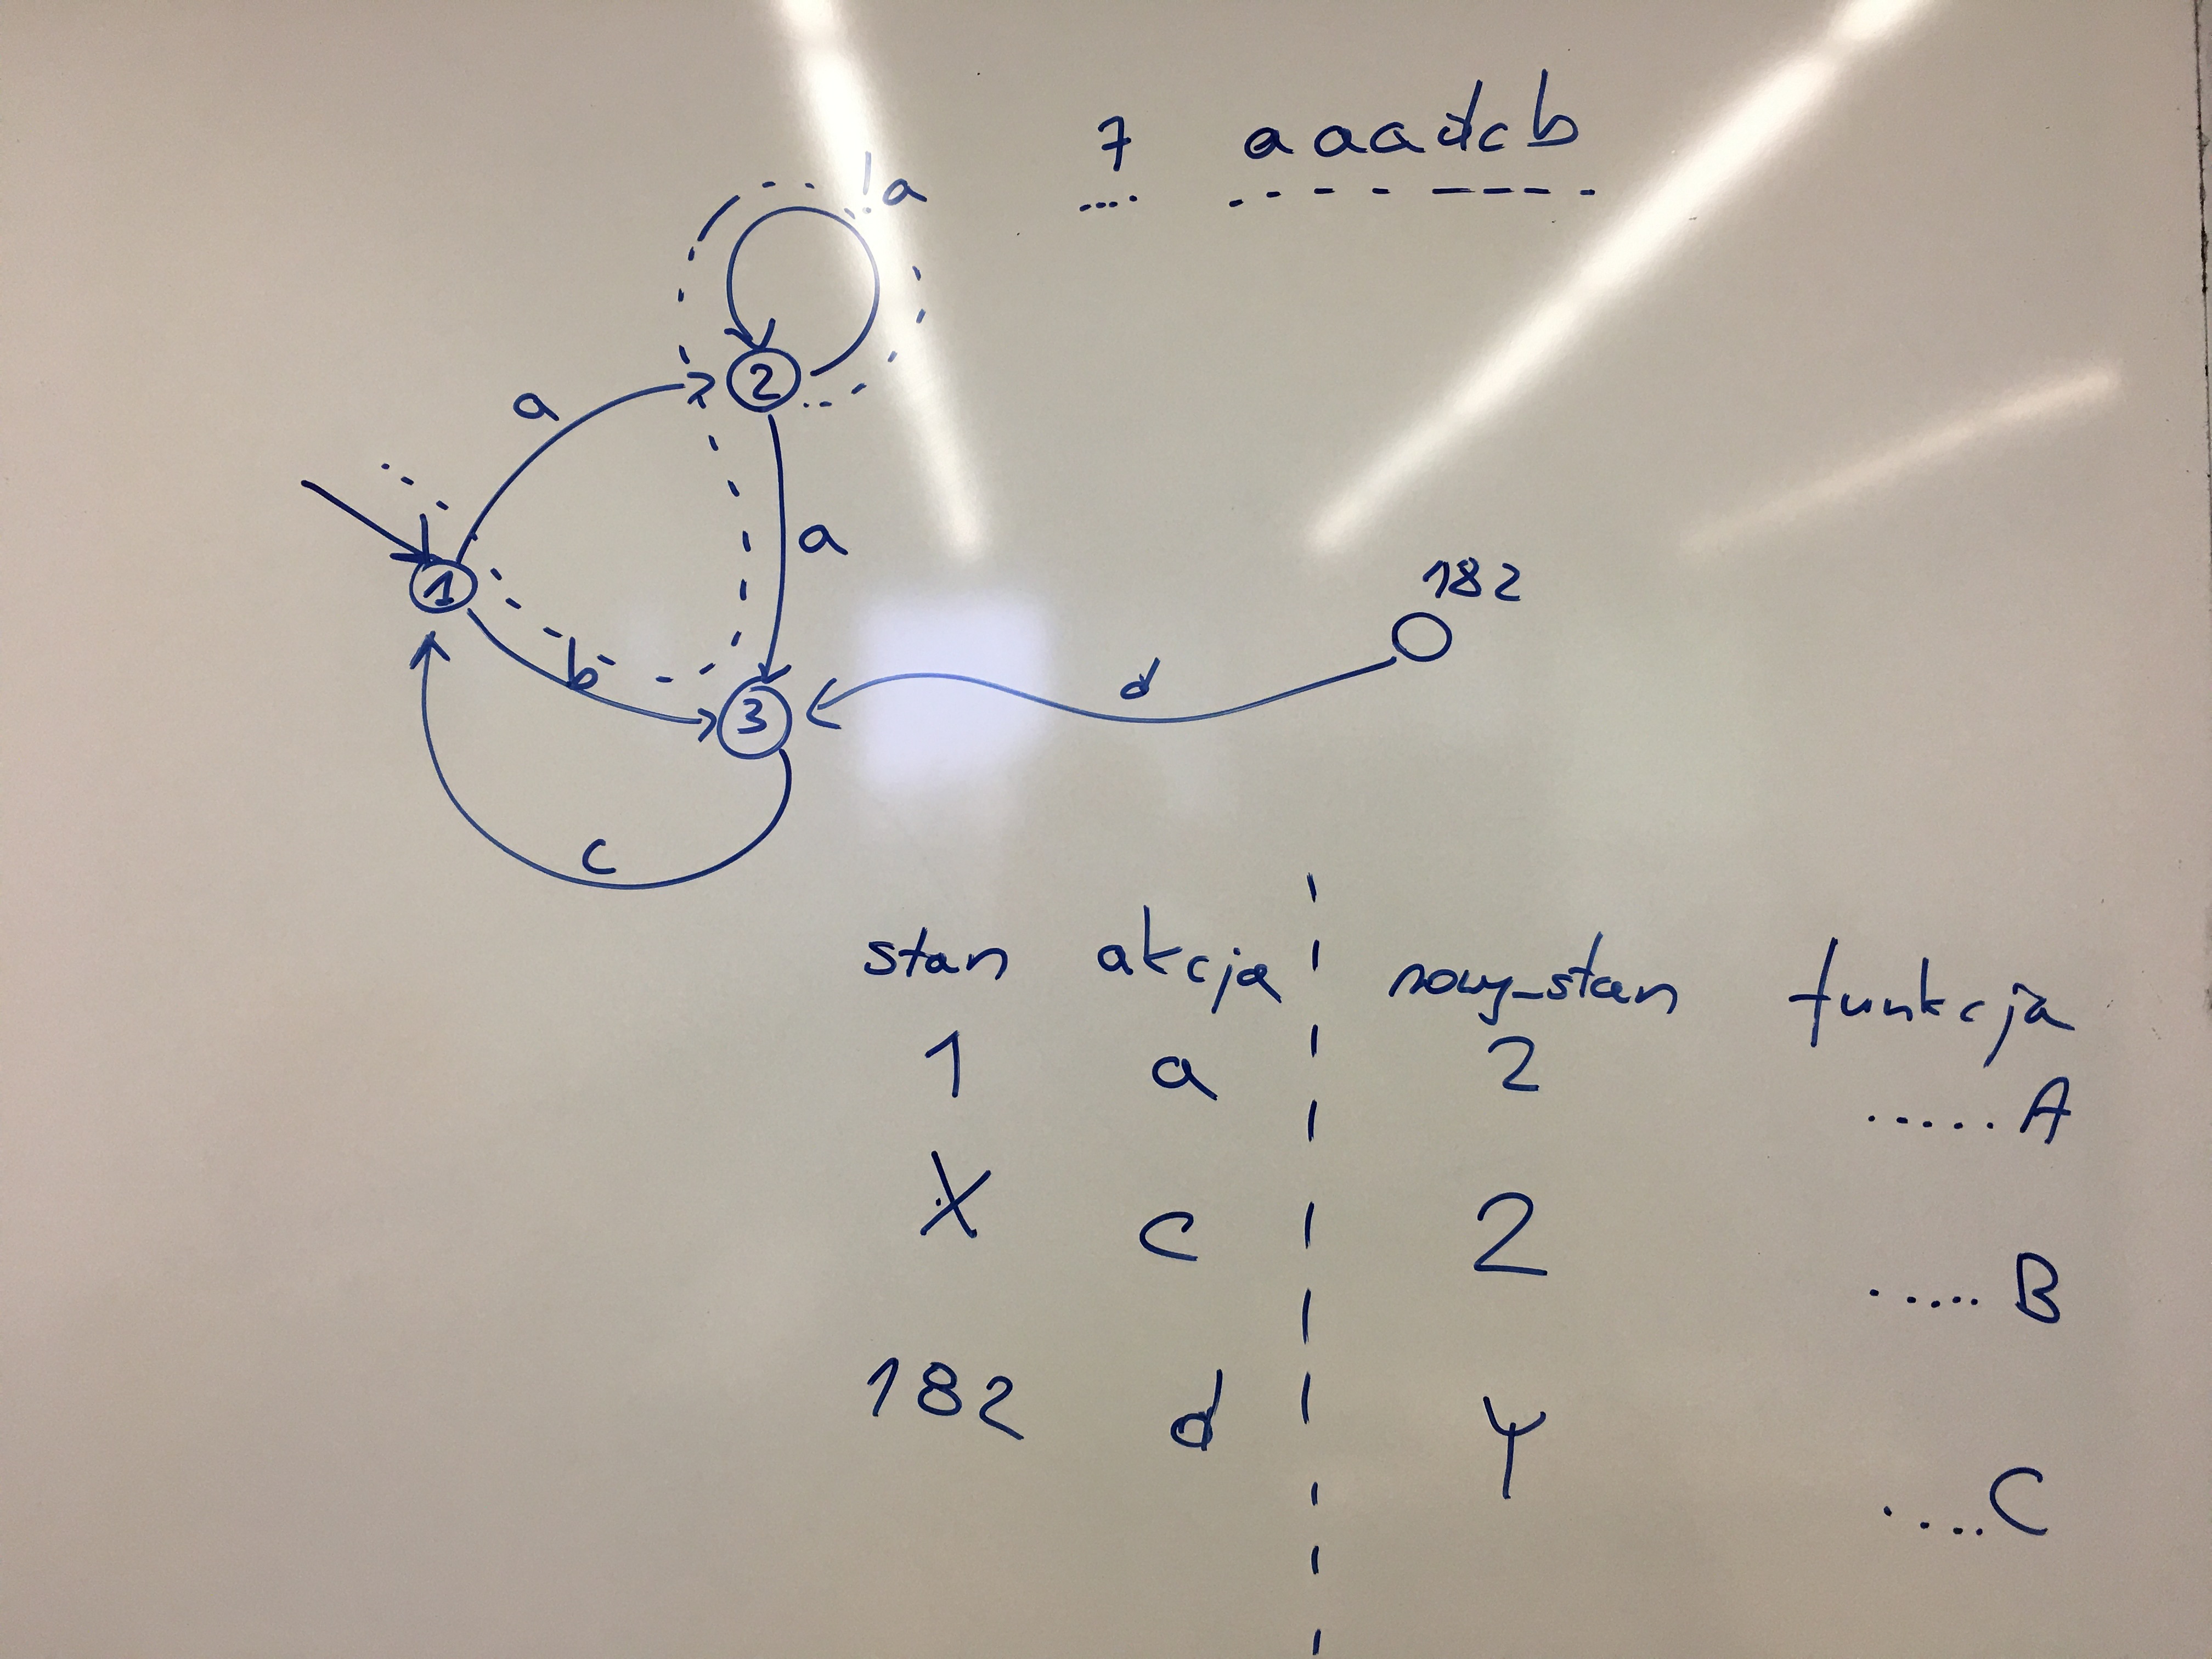 7 aaadcb
!a
2
a
a
1
182
b
d
3
c
stan akcja nowy_stan funkcja
1 a 2 ..... A
X c 2 ..... B
182 d Y .... C